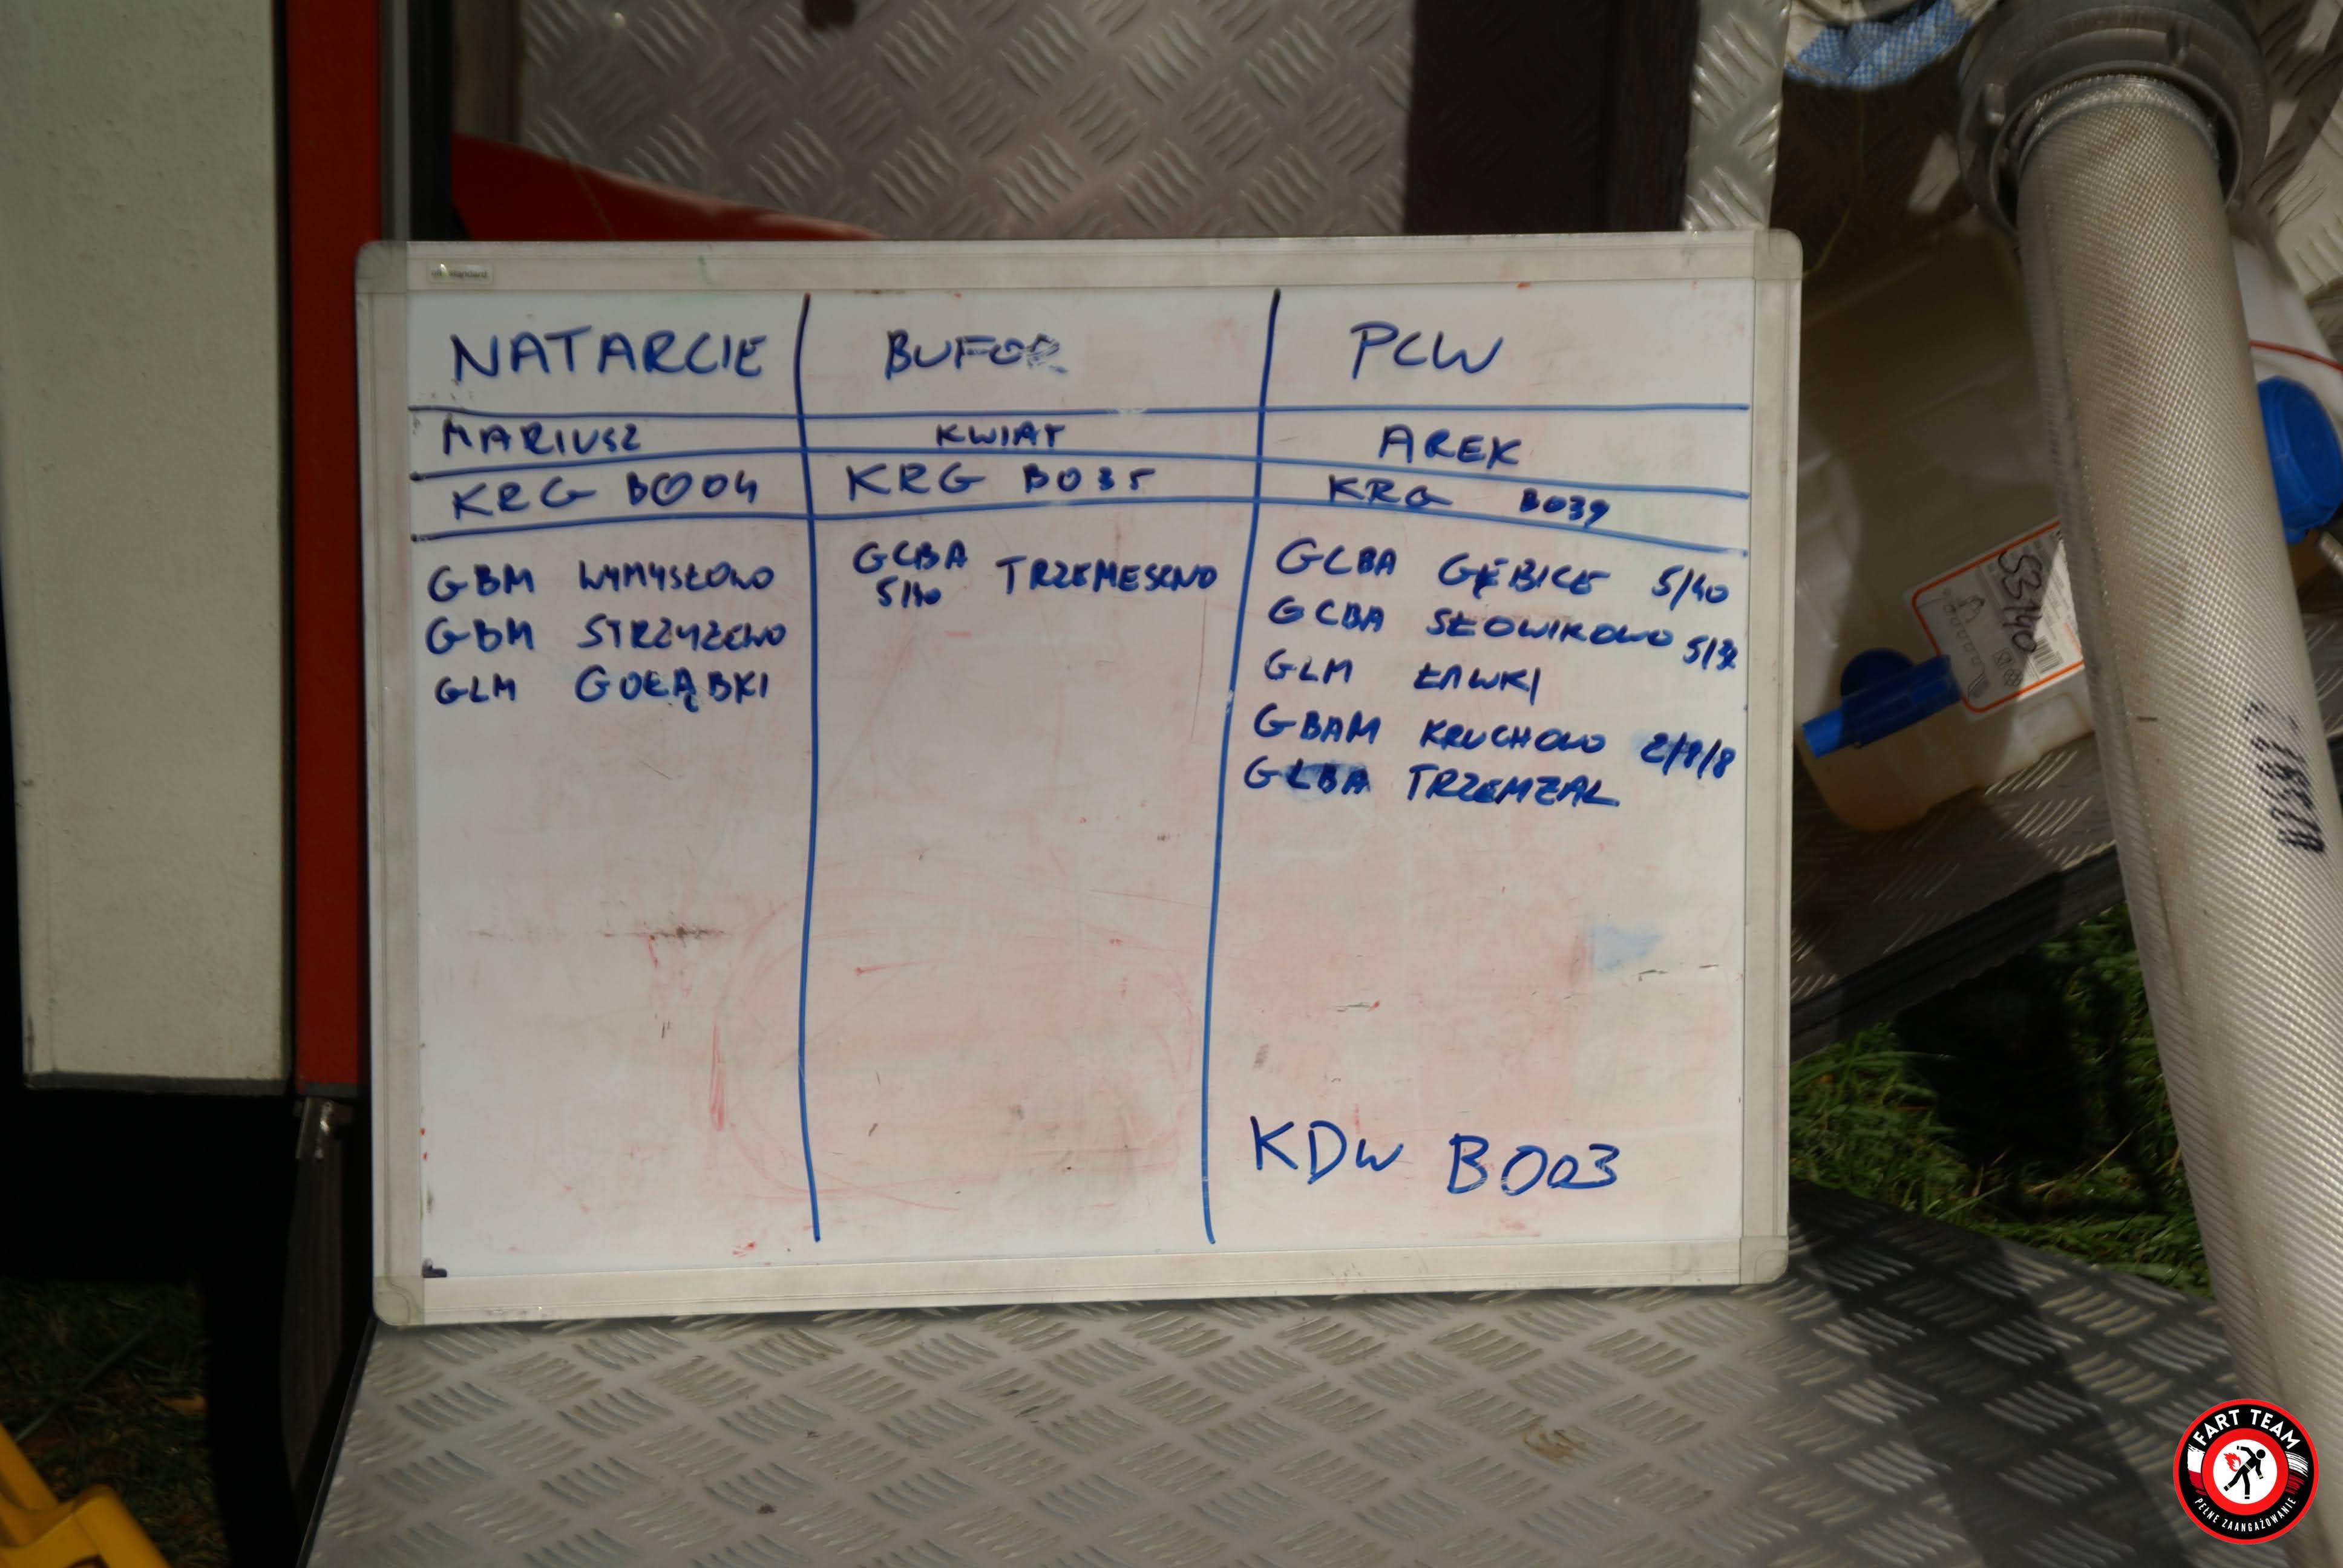 NATARCIE BUFOR PCW
MARIUSZ KWIAT AREK
KRG B004 KRG B035 KRG B039
GBM WYMYSŁOWO
GBM STRZYŻEWO
GLM GOŁĄBKI
GCBA TRZEMESZNO
5/40
GCBA GĘBICE 5/40
GCBA SŁOWIKOWO 5/32
GLM ŁAWKI
GBAM KRUCHOWO 2/8/8
GLBA TRZEMŻAL
KDW B003
53140
FART TEAM
PEŁNE ZAANGAŻOWANIE